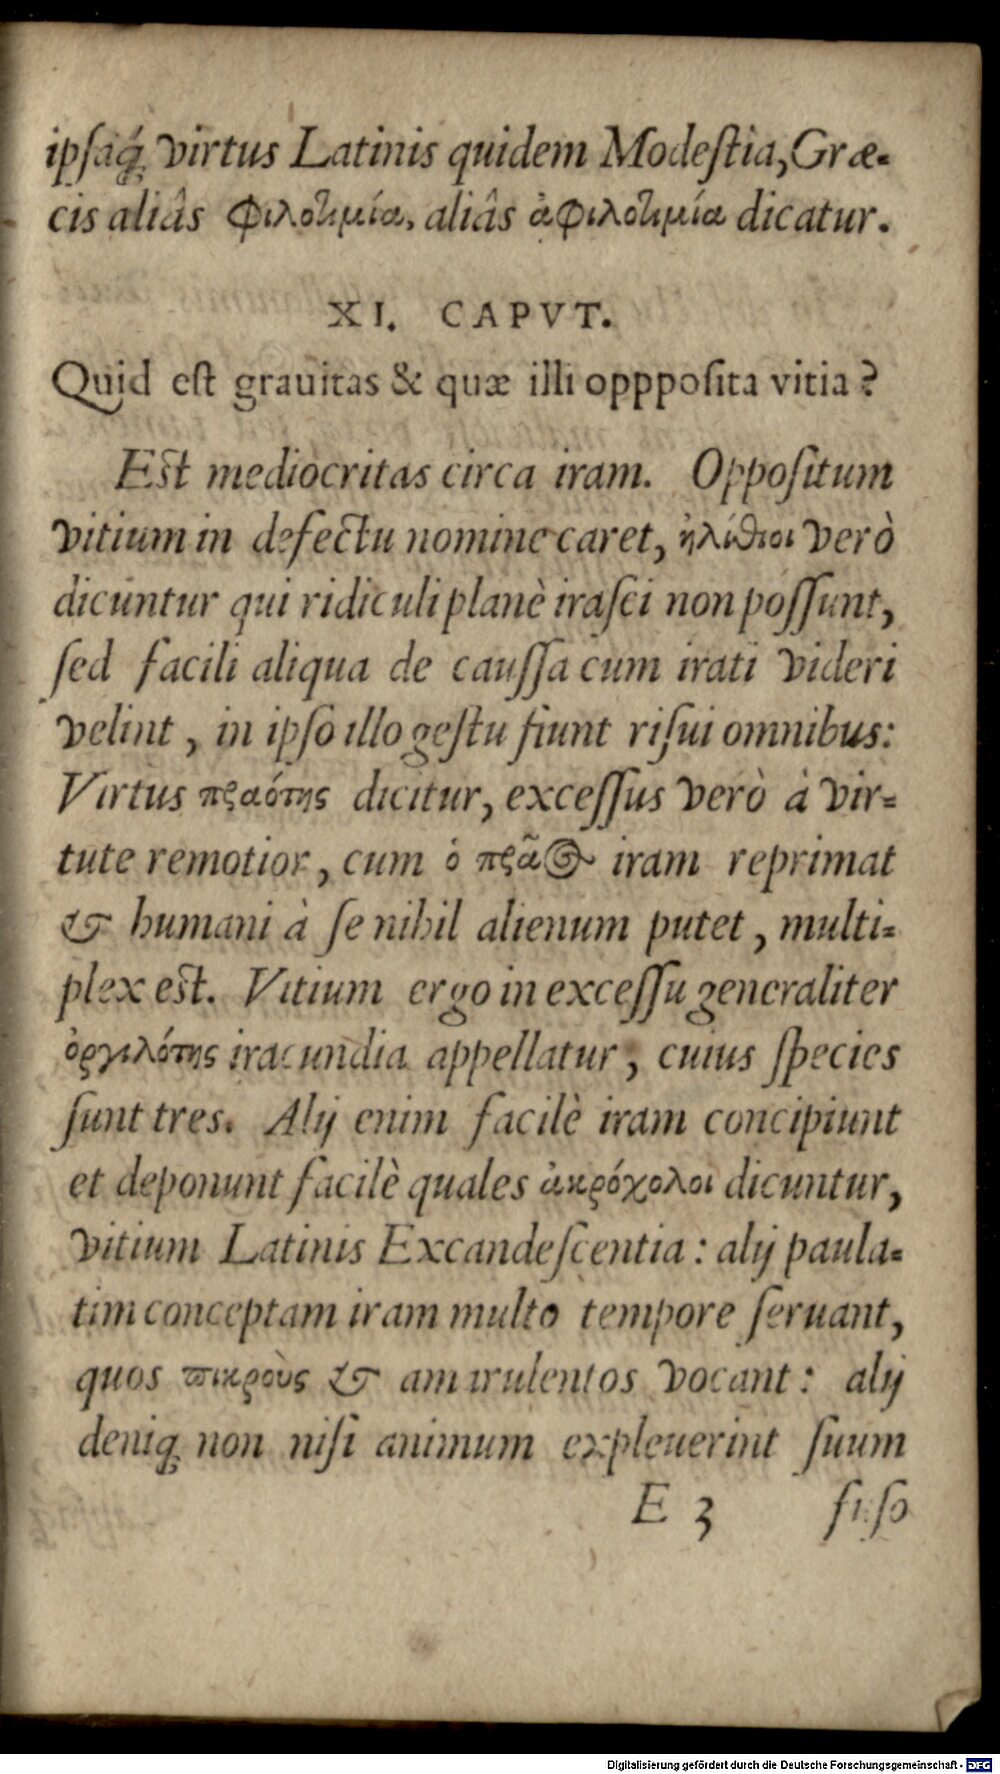 ipſaq́; virtus Latinis quidem Modeſtia, Græ-
cis aliâs φιλοτιμία, aliâs ἀφιλοτιμία dicatur.
XI. CAPVT.
Quid eſt grauitas & quæ illi oppposita vitia?
Eſt mediocritas circa iram. Oppoſitum
vitium in defectu nomine caret, ἠλίθιοι verò
dicuntur qui ridiculi planè iraſci non poſſunt,
ſed facili aliqua de cauſſa cum irati videri
velint, in ipſo illo geſtu fiunt riſui omnibus:
Virtus πραότης dicitur, exceſſus verò à vir-
tute remotior, cum ὁ πρᾶος iram reprimat
& humani à ſe nihil alienum putet, multi-
plex eſt. Vitium ergo in exceſſu generaliter
ὀργιλότης iracundia appellatur, cuius ſpecies
ſunt tres. Alij enim facilè iram concipiunt
et deponunt facilè quales ἀκρόχολοι dicuntur,
vitium Latinis Excandeſcentia: alij paula-
tim conceptam iram multo tempore ſeruant,
quos πικροὺς & amarulentos vocant: alij
deniq; non niſi animum expleuerint ſuum
E 3 ſuſo
Digitalisierung gefördert durch die Deutsche Forschungsgemeinschaft - DFG